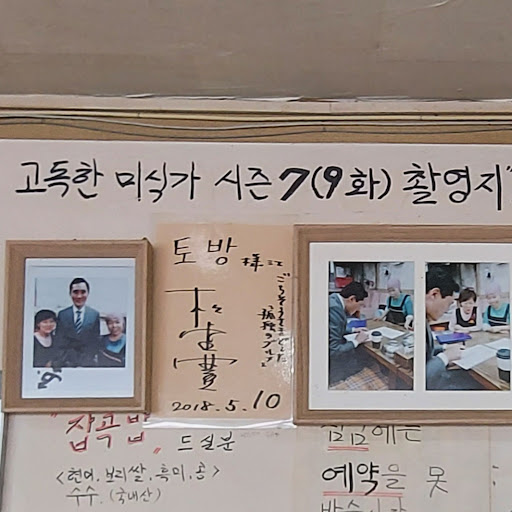 고독한 미식가 시즌 7(9화) 촬영지"
토방 様江
ごちそうさまでした
「孤独のグルメ」
2018.5.10
"잡곡밥" 드실분
<현미, 보리쌀, 흑미, 콩>
수수. (국내산)
점심에는
예약을 못